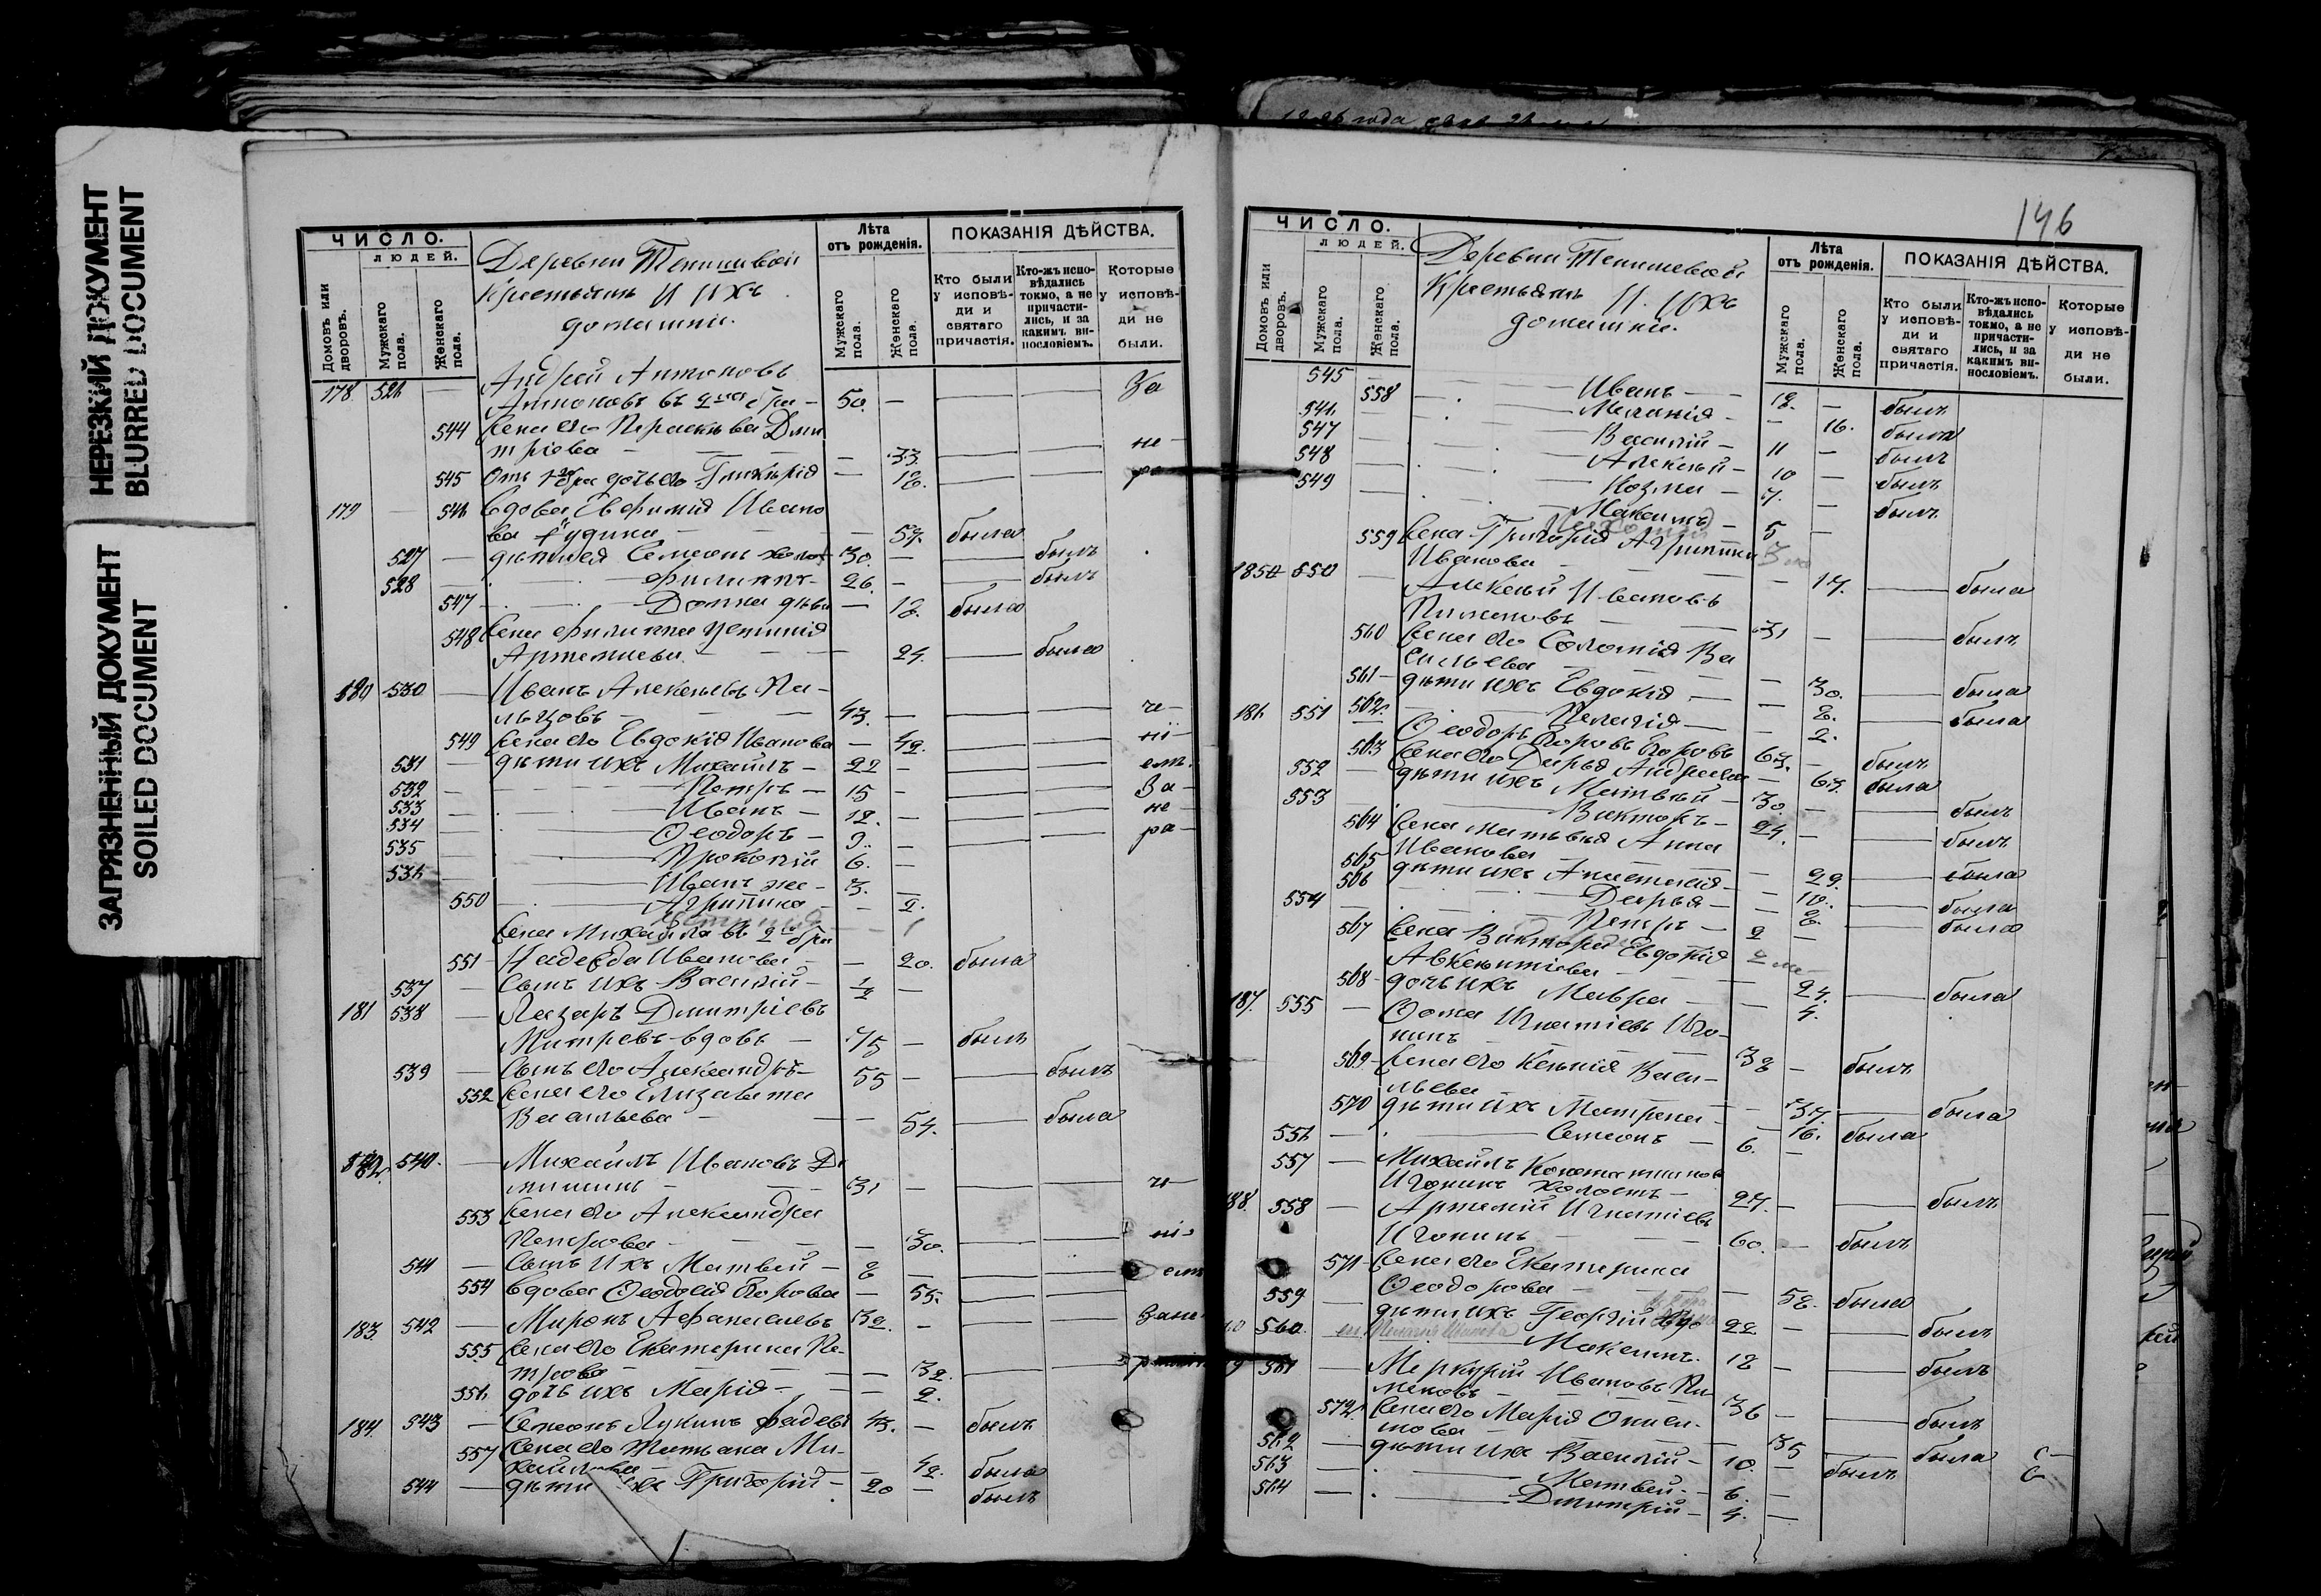 НЕРЕЗКИЙ ДОКУМЕНТ
BLURRED DOCUMENT
ЗАГРЯЗНЕННЫЙ ДОКУМЕНТ
SOILED DOCUMENT
ЧИСЛО.
ЛЮДЕЙ.
Домовъ или дворовъ.
Мужскаго пола.
Женскаго пола.
Деревни
Крестьяне и ихъ
домашніе.
Лѣта
отъ рожденія.
Мужскаго пола.
Женскаго пола.
ПОКАЗАНІЯ ДѢЙСТВА.
Кто были у исповѣди и святаго причастія.
Кто-жъ исповѣдались токмо, а не причастились, и за какимъ винословіемъ.
Которые у исповѣди не были.
178 526 — Андрей Антоновъ
Антоновъ въ 2мъ бра— 50. — За
544 Жена его Параскева Дми
тріева — 33. не
545 Отъ 1го бра дочь его Гликерія — 12. ра
179 — 546 Вдова Евфимія Ивано
ва — 57. была
527 — дѣти ея Симеонъ холос 30. — былъ
528 — Филиппъ — 26. — былъ
547 — Домна дѣви — 18. была
548 Жена Филиппа Устинія
Артемиева — 24. была
180 530 — Иванъ Алексѣевъ Па-
льцовъ — 43. — не
549 Жена его Евдокія Иванова — 42.
531 — дѣти ихъ Михаилъ — 22 —
532 — Петръ — 15 — За
533 — Иванъ — 12. — не
534 — Ѳеодоръ — 9. — ра
535 — Прокопій 6. —
536 — Иванъ же — 3. —
550 — Агрипина — 2.
Жена Михаила въ 2мъ бра
551 Надежда Иванова — 20. была
537 — Сынъ ихъ Василій — 1/2 —
181 538 — Лазарь Дмитріевъ
Митревъ вдовъ — 75 — былъ
539 — Сынъ его Александръ — 55 — былъ
552 Жена его Елизавета
Васильева — 54. была
182. 540. — Михаилъ Ивановъ Де
31 —
553 Жена его Александра
Петрова — 30.
541 — Сынъ ихъ Матвей — 8 —
554 Вдова Ѳеодосія Егорова — 55.
183. 542 — Миронъ Афанасьевъ 32. —
555 Жена его Екатерина Пе-
трова — 32.
556 дочь ихъ Марія — 2.
184. 543 — Симеонъ Лукинъ Фадеевъ 43. — былъ
557 Жена его Татьяна Ми-
хайлова — 42. была
544 — дѣти ихъ Григорій — 20 — былъ
146
ЧИСЛО.
ЛЮДЕЙ.
Домовъ или дворовъ.
Мужскаго пола.
Женскаго пола.
Деревни
Крестьяне и ихъ
домашніе.
Лѣта
отъ рожденія.
Мужскаго пола.
Женскаго пола.
ПОКАЗАНІЯ ДѢЙСТВА.
Кто были у исповѣди и святаго причастія.
Кто-жъ исповѣдались токмо, а не причастились, и за какимъ винословіемъ.
Которые у исповѣди не были.
545 — Иванъ — 18. — былъ
558 — Меланія — 16. была
546 — Василій — 11 — былъ
547 — Алексѣй — 10 — былъ
548 — Козма — 7. — былъ
549 — Максимъ — 5 —
559 Жена Григорія Агрипина
Иванова — 17. — была
185 550 — Алексѣй Ивановъ
Пимановъ — 31 — былъ
560 Жена его Соломія Ва
сильева — 30. — была
561 — дѣти ихъ Евдокія — 8. — была
562 — Пелагія — 2.
186 551 Ѳеодоръ Егоровъ Егоровъ 63. — былъ
563 Жена его Дарья Андреева — 63. была
552 — дѣти ихъ Матвѣй — 30. — былъ
553 — Викторъ — 24. — былъ
564 Жена Матвѣя Анна
Иванова — 29. была
565 дѣти ихъ Анастасія — 10. была
566 — Дарья — 8. была
554 — Петръ — 2 —
567 Жена Виктора Евдокія
Авксентіева — 24. была
568 дочь ихъ Мавра — 4.
187. 555 — Ѳома Игнатіевъ Иго-
нинъ — 38 — былъ
569 Жена его Ксенія Васи-
льева — 37. была
570 дѣти ихъ Матрена — 16. была
556 — Симеонъ — 6. —
557 — Михаилъ Константиновъ
Игонинъ холостъ — 27. — былъ
188. 558 — Артемій Игнатіевъ
Игонинъ — 60. — былъ
571 Жена его Екатерина
Ѳеодорова — 58. была
559 — дѣти ихъ Георгій 22 — былъ
560 — Максимъ. 18 — былъ
561 — Меркурій Ивановъ Пи
мановъ — 36 — былъ
572 Жена его Марія
35 — была
562 — дѣти ихъ Василій — 10. — былъ
563 — Матвей. — 6. —
564 — Дмитрій — 4. —